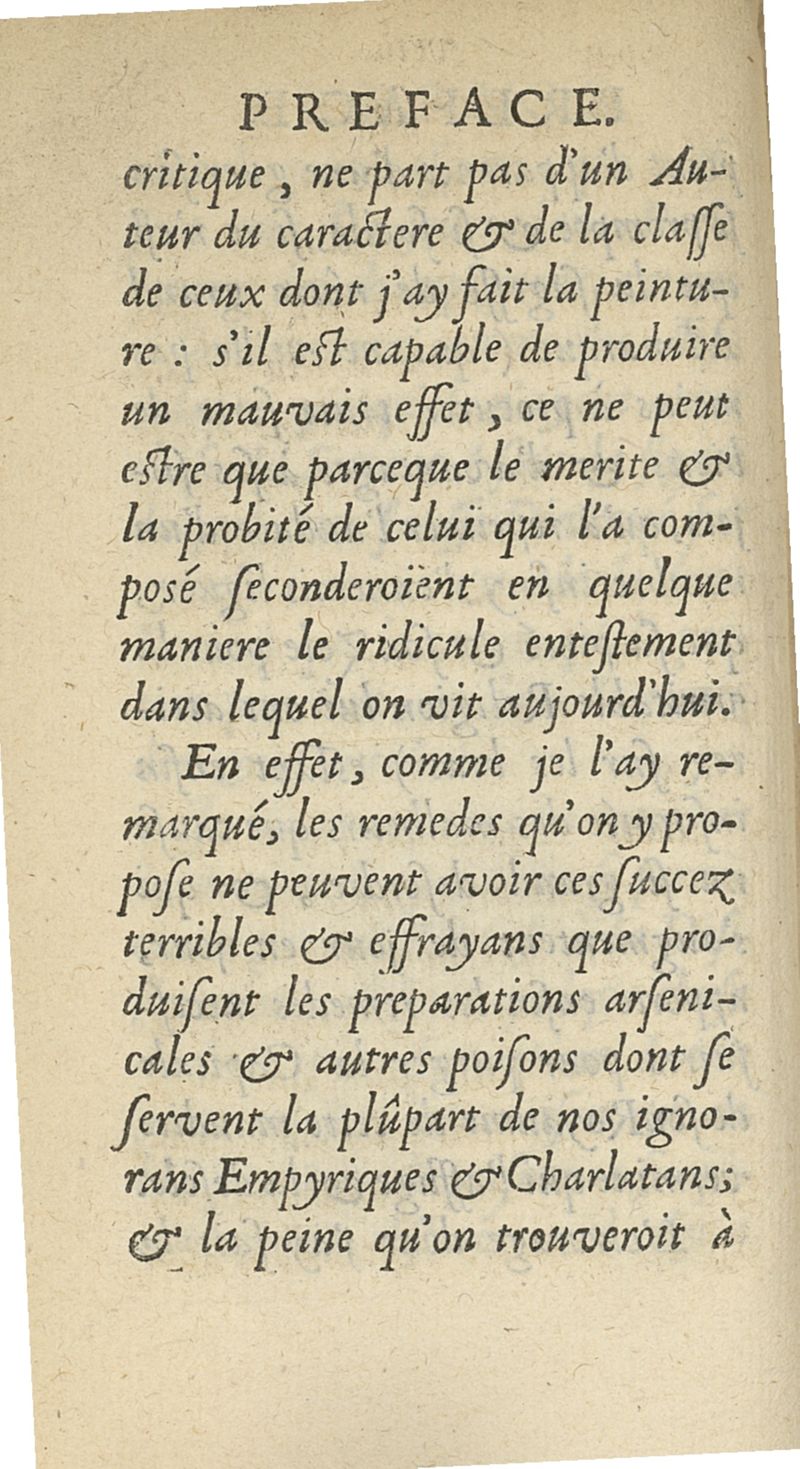 PREFACE.
critique, ne part pas d'un Au-
teur du caractere & de la claſſe
de ceux dont j'ay fait la peintu-
re : s'il eſt capable de produire
un mauvais effet, ce ne peut
eſtre que parceque le merite &
la probité de celui qui l'a com-
posé ſeconderoient en quelque
maniere le ridicule enteſtement
dans lequel on vit aujourd'hui.
En effet, comme je l'ay re-
marqué, les remedes qu'on y pro-
poſe ne peuvent avoir ces ſuccez
terribles & effrayans que pro-
duiſent les preparations arſeni-
cales & autres poiſons dont ſe
ſervent la plûpart de nos igno-
rans Empyriques & Charlatans;
& la peine qu'on trouveroit à